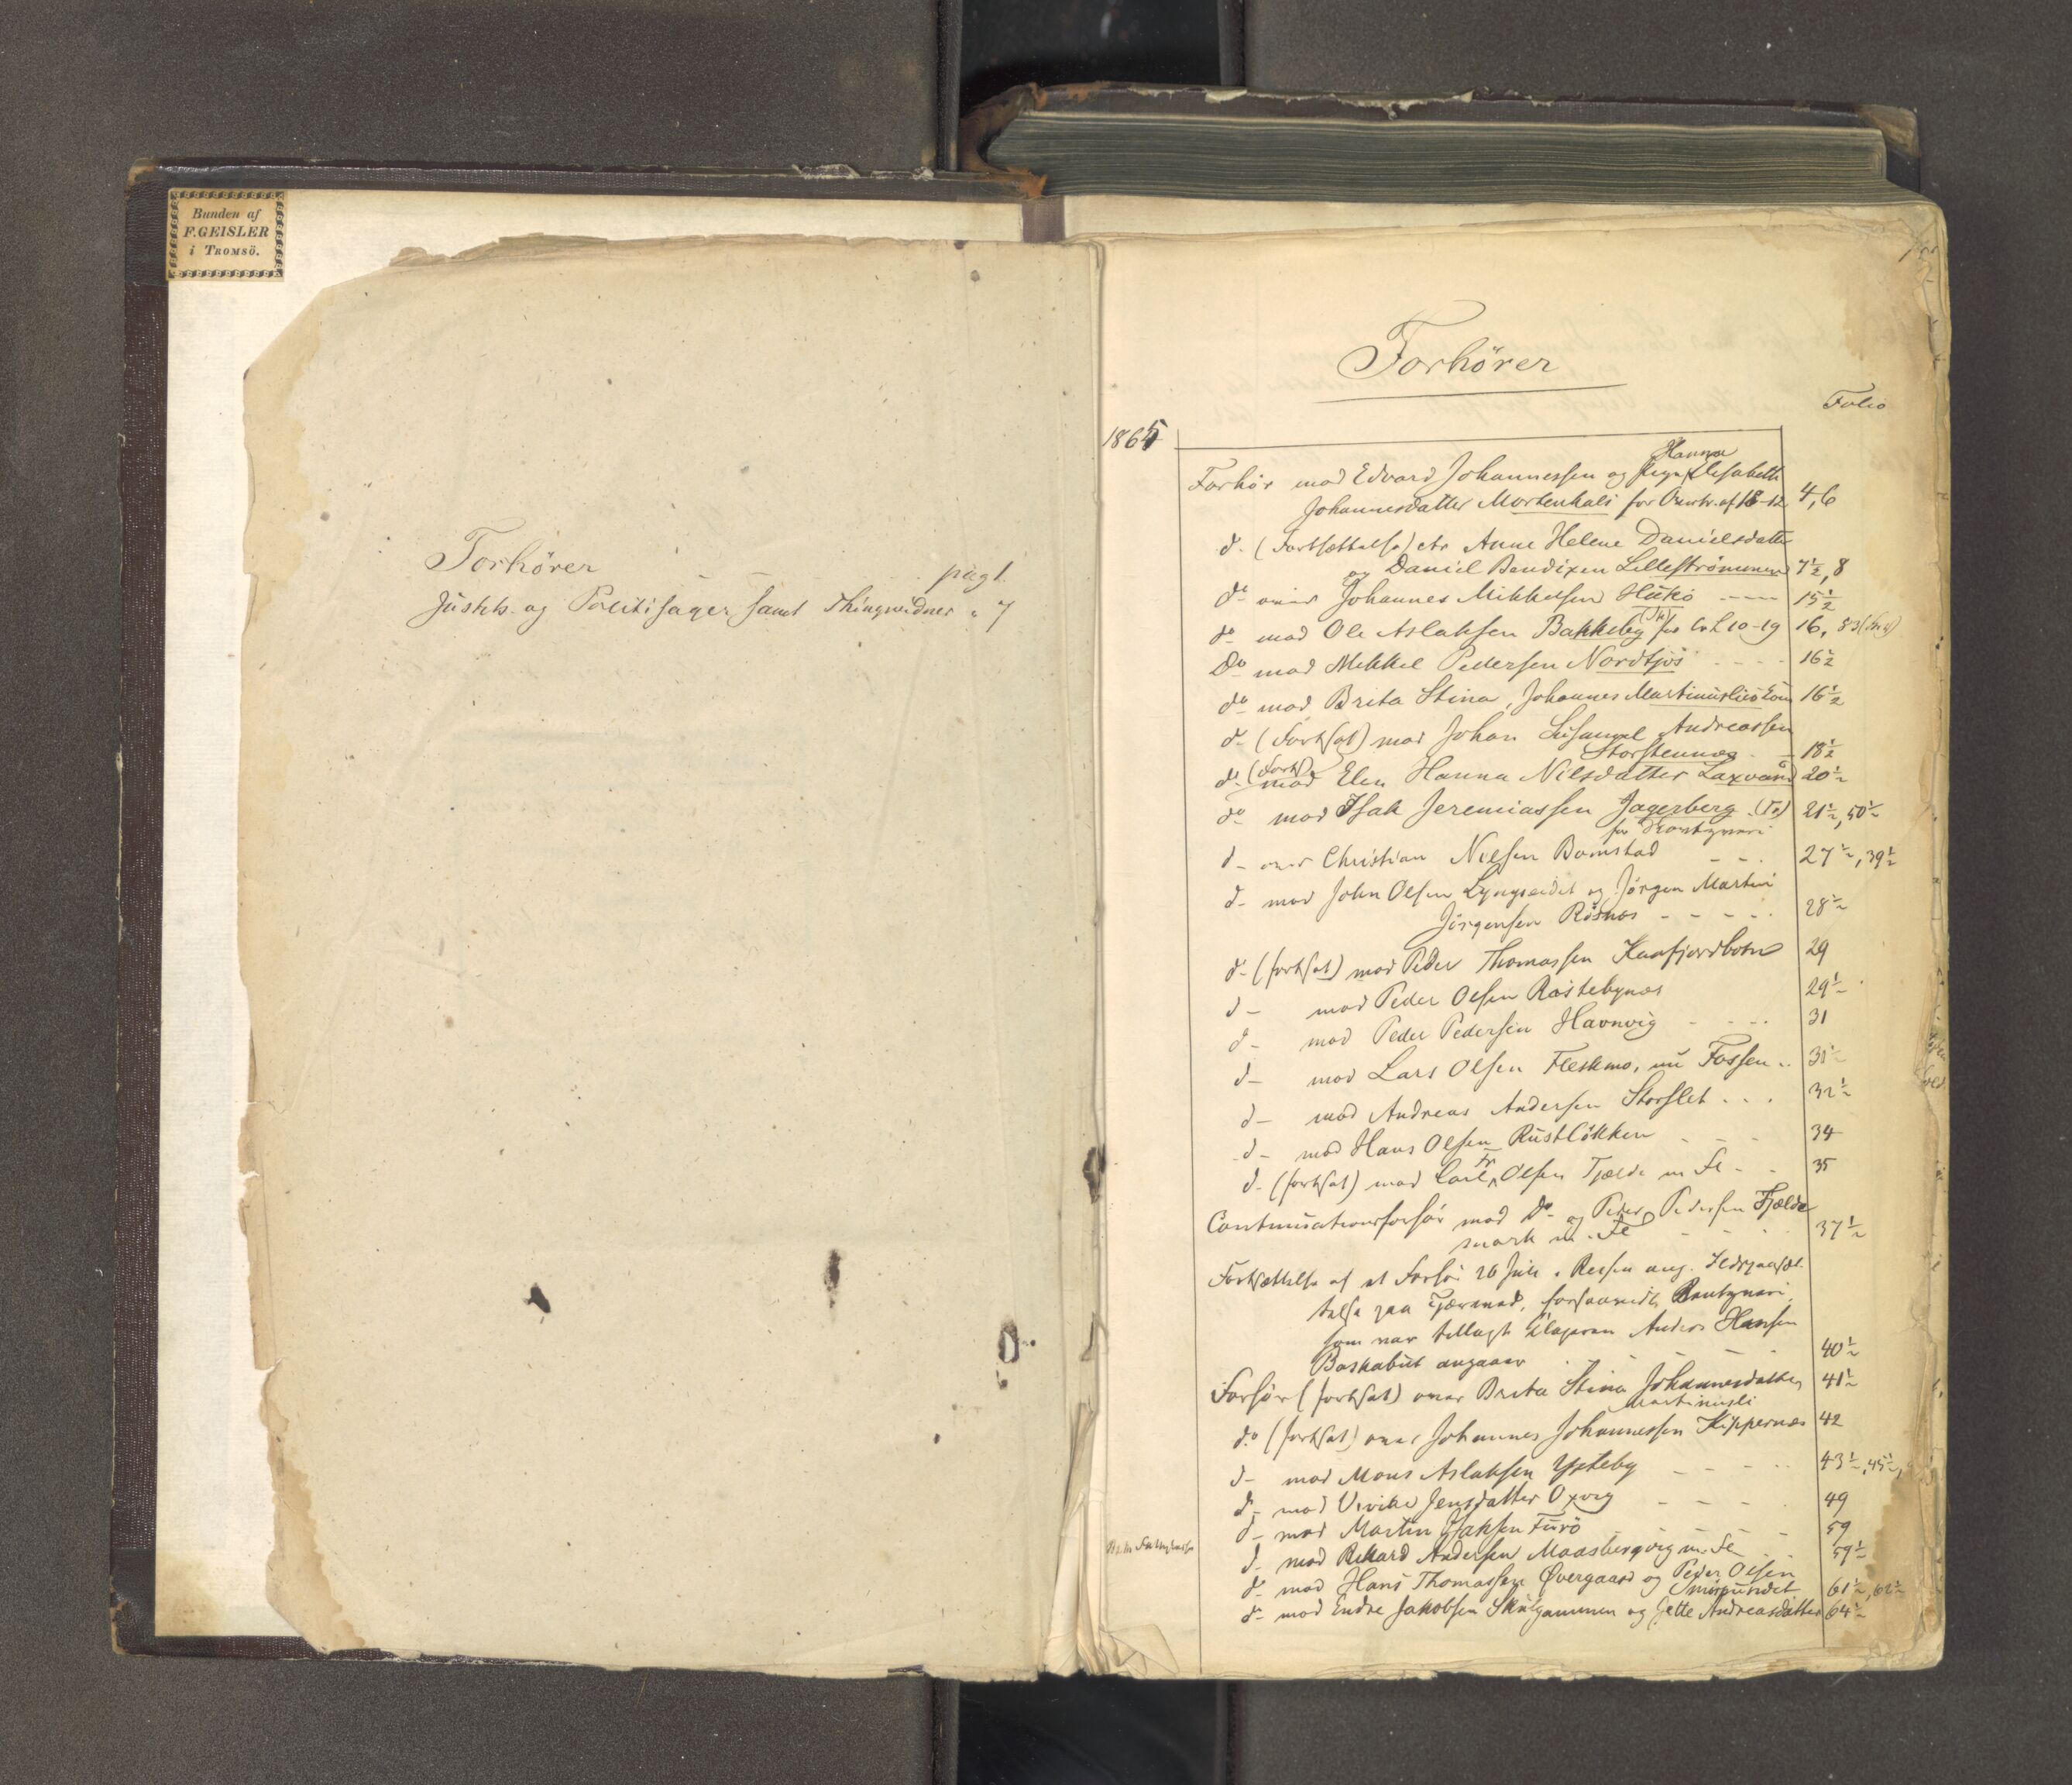 Bunden af
F. GEISLER
i TROMSÖ.
Forhörer pag 1.
Justits- og Politisager samt Thingvidner " 7
Forhörer
Folio
1865
Hanna
Forhör mod Edvard Johannessen og Elisabeth
Johannesdatter Mortenhals for af 18-12 4,6
d- (Fortsættelse) Anne Helene Danielsdatter
og Daniel Bendixen Lillestrømmen 7½, 8
do over Johannes Mikkelsen Hukö 15½
do mod Ole Aslaksen Bakkeby for Cr L 10-19 16, 83
Do mod Mikkel Pedersen Nordkjos 16½
do mod Brita Stina, Johannes 16½
d- (Fortsat) mod Johan Andreassen
Storstennæs 18½
do (Forts) mod Elen Hanna Nilsdatter Laxvand 20½
do mod Isak Jeremiassen Jagerberg 21½, 50½
for
d- over Christian Nielsen Bomstad 27½, 39½
d- mod John Olsen Lyngseidet og Jörgen Martin
Jörgensen Rösnæs 28½
d- (fortsat) mod Peder Thomassen Kaafjordbotn 29
d- mod Peder Olsen Rastebynæs 29½
d- mod Peder Pedersen Havnvig 31
d- mod Lars Olsen Fleskmo, nu Fossen 31½
d- mod Andreas Andersen Storslet 32½
d- mod Hans Olsen Rustlökken 34
d- (fortsat) mod Carl Fr Olsen Tjælde m Fl 35
Continuationsforhör mod Do og Peder Pedersen Fjælde
mark m. Fl 37½
Fortsættelse af et Forhör 26 Juli
som var tillagt Klageren Anders Hansen
Baskabut angaaer 40½
Forhör (fortsat) over Brita Stina Johannesdatter 41½
Martinusli
do (fortsat) over Johannes Johannessen Kippernæs 42
d- mod Mons Aslaksen Ysteby 43½, 45½,
d- mod Jensdatter Oxvig 49
d- mod Martin Isaksen Furö 59
d- mod Rikard Andersen Maasbergvig m. Fl 59½
do mod Hans Thomassen Øvergaard og Peder Olsen 61½, 62½
d- mod Endre Jakobsen Skulgammen og Jette Andreasdatter 64½